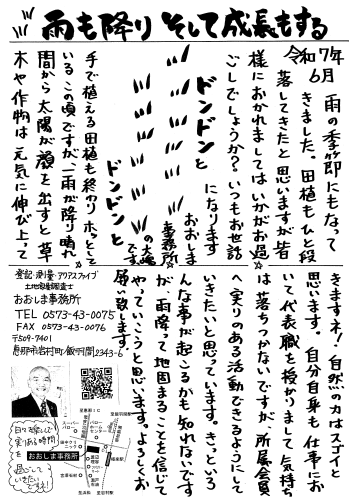 雨も降り そして成長もする
令和7年
6月
雨の季節にもなって
きました。田植もひと段
落してきたと思いますが皆
様におかれましてはいかがお過
ごしでしょうか?いつもお世話
になります
おおしま
事務所
の大嶋
です。
ドンドンと
ドンドンと
手で植える田植も終わりホッとして
いるこの頃ですが、一雨が降り晴れ
間から太陽が顔を出すと草
木や作物は元気に伸び上って
きますネ!自然の力はスゴイと
思います。自分自身も仕事にお
いて代表職を授かりまして気持ち
は落ちつかないですが所属会員
へ実りのある活動できるようにして
いきたいと思っています。きっといろ
んな事が起こるかも知れないです
が雨降って地固まることを信じて
やっていこうと思います。よろしくお
願い致します。
登記・測量・アクアスファイブ
土地家屋調査士
おおしま事務所
TEL 0573-43-0075
FAX 0573-43-0076
〒509-7401
恵那市岩村町飯羽間2343-6
おおしま事務所